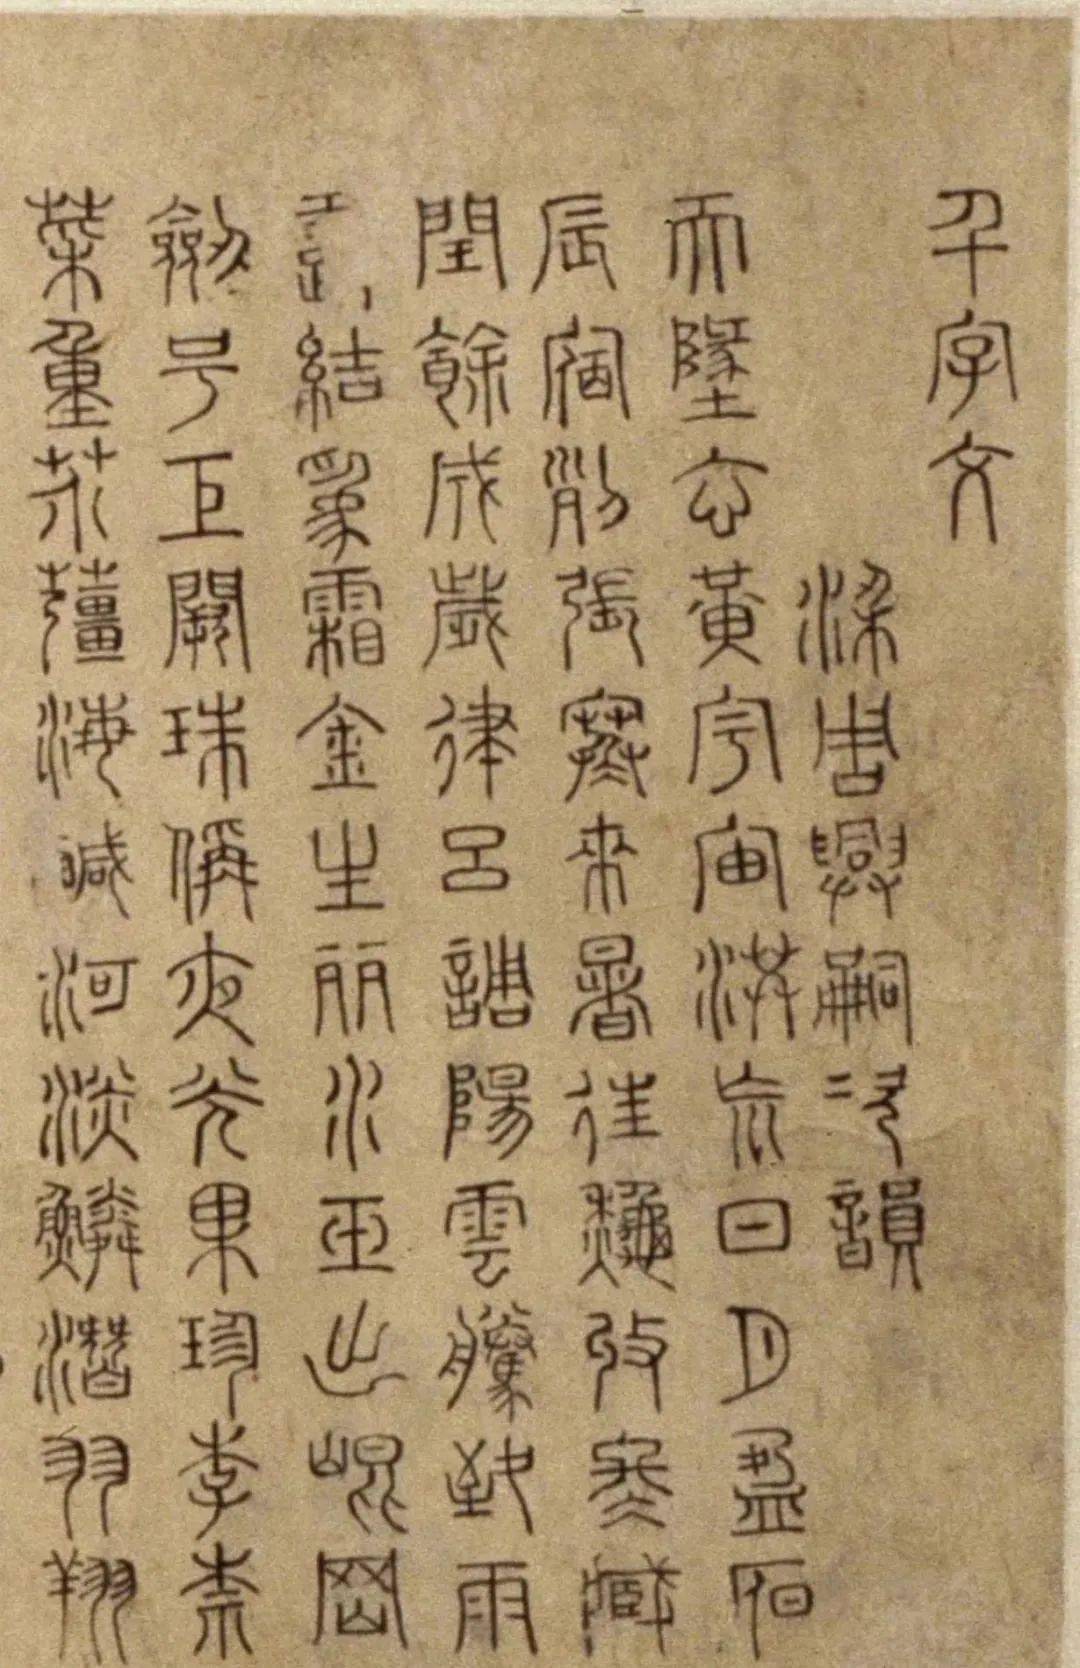 千字文
梁周興嗣次韻
天地玄黃宇宙洪荒日月盈昃
辰宿列張寒來暑往秋收冬藏
閏餘成歲律呂調陽雲騰致雨
露結為霜金生麗水玉出崑岡
劍號巨闕珠稱夜光果珍李柰
菜重芥薑海鹹河淡鱗潛羽翔